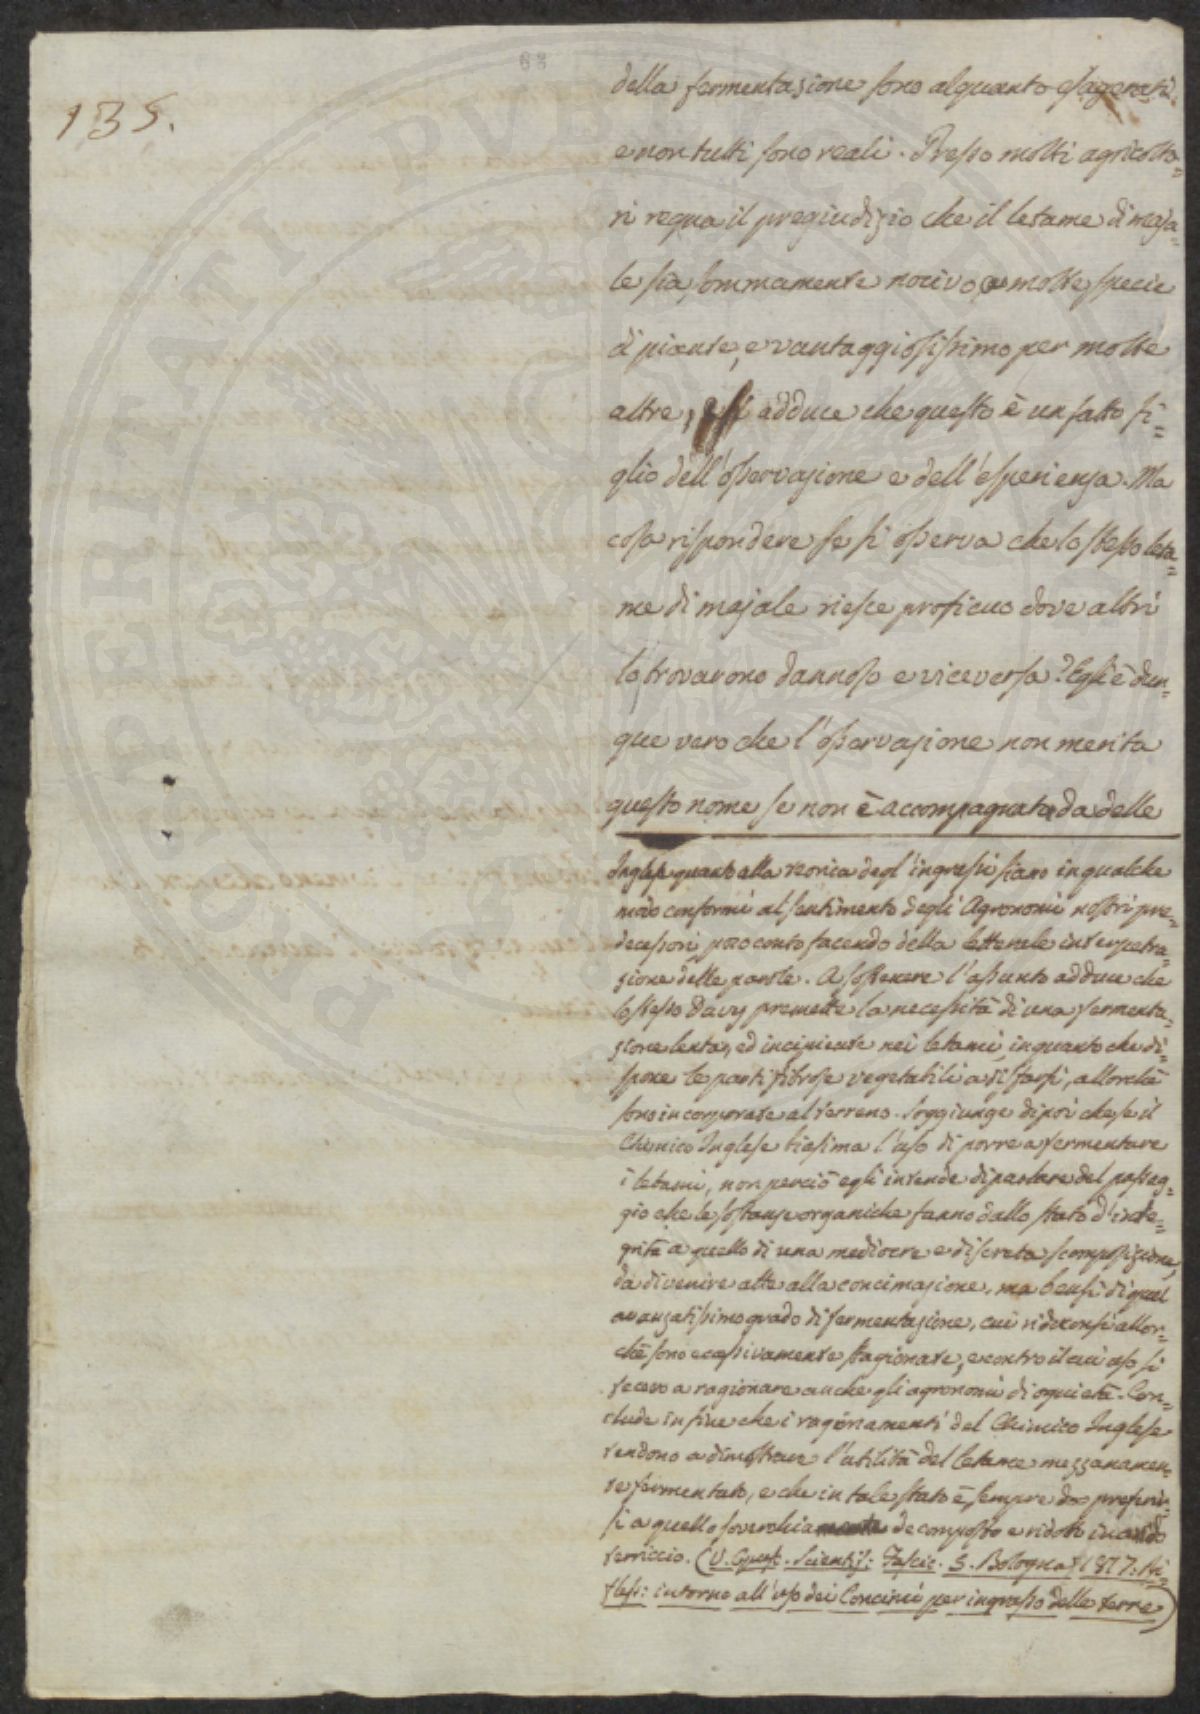 68
135.
della fermentazione sono alquanto esagerati
e non tutti sono reali. Presso molti agricolto=
ri regna il pregiudizio che il letame di maja=
le sia sommamente nocivo a molte specie
di piante, e vantaggiosissimo per molte
altre, adduce che questo è un fatto fi=
glio dell'osservazione e dell'esperienza. Ma
cosa rispondere se si osserva che lo stesso leta=
me di majale riesce proficuo dove altri
lo trovarono dannoso e viceversa? Egli è dun=
que vero che l'osservazione non merita
questo nome se non è accompagnata da delle
Inglese quanto alla teorica degl'ingrassi siano in qualche
modo conformi al sentimento degli Agronomi nostri pre=
decessori poco conto facendo della letterale interpetra=
zione delle parole. A sostenere l'assunto adduce che
lo stesso Davy premette la necessità di una fermenta=
zione lenta, ed incipiente nei letami, in quanto che di=
spone le parti fibrose vegetabili a disfarsi, allorchè
sono incorporate al terreno. Soggiunge dipoi che se il
Chimico Inglese biasima l'uso di porre a fermentare
i letami, non perciò egli intende di parlare del passag=
gio che le sostanze organiche fanno dallo stato d'inte=
grità a quello di una mediocre e discreta scomposizione,
da divenire atte alla concimazione, ma bensì di quel
avanzatissimo grado di fermentazione, cui riduconsi allor=
chè sono eccessivamente stagionate, e contro il cui uso si
fecero a ragionare anche gli agronomi di ogni età. Con=
clude in fine che i ragionamenti del Chimico Inglese
tendono a dimostrare l'utilità del letame mezzanamen=
te fermentato, e che in tale stato è sempre da preferir=
si a quello soverchiamente decomposto e ridotto in arido
terriccio. (V. Opusc. Scientif: Fascic. 5. Bologna 1817: Ri=
fless: intorno all'uso dei Concimi per ingrasso delle terre)
PERITATI PVBLICAE